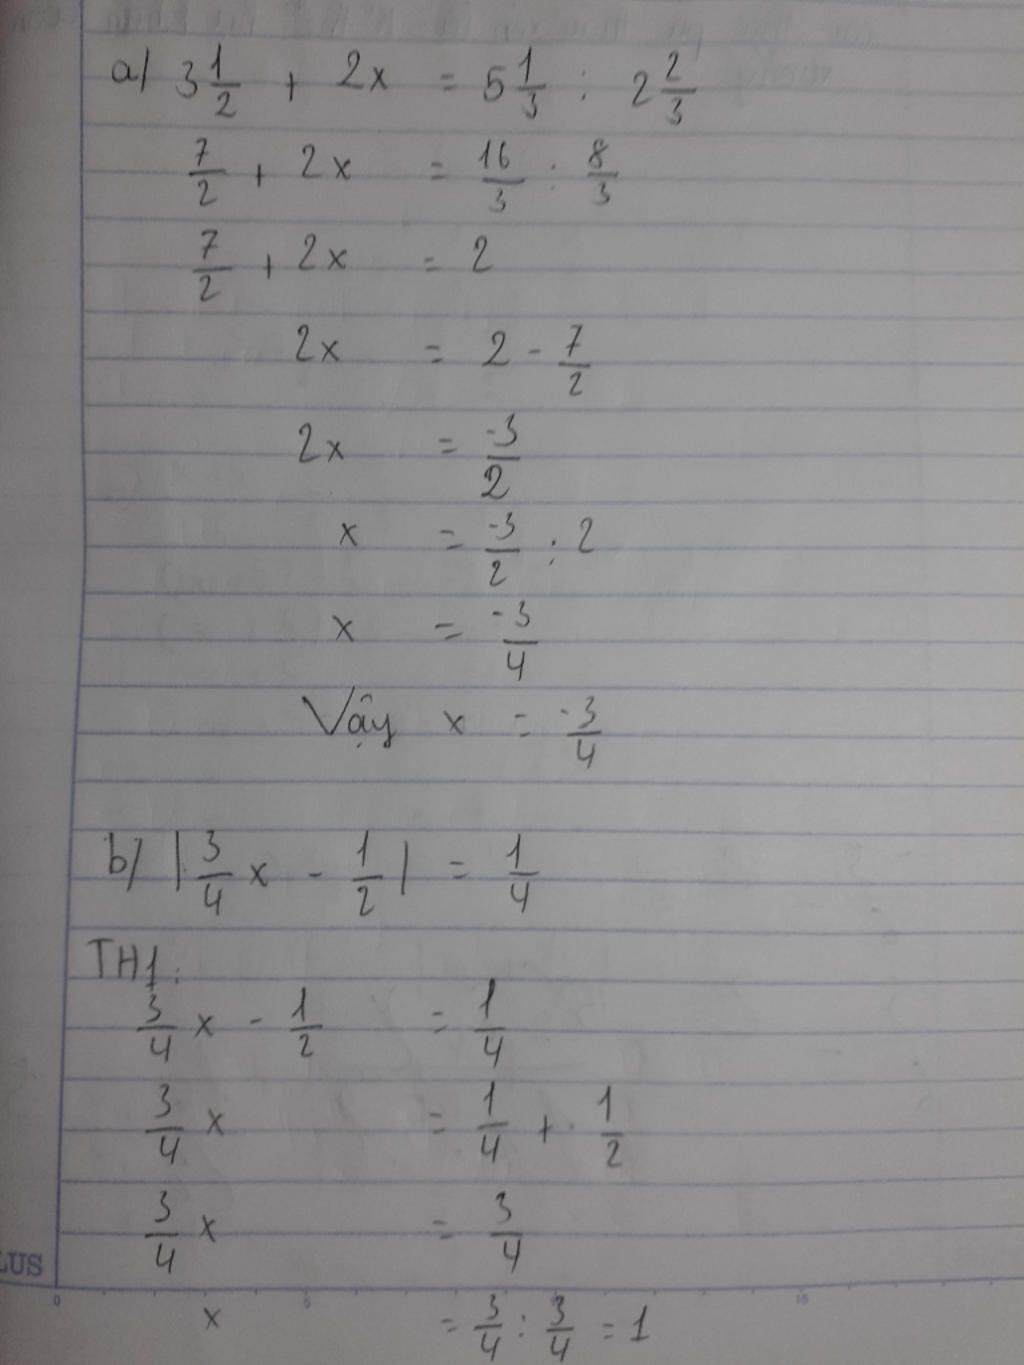 a/ 3 1/2 + 2x = 5 1/3 : 2 2/3
7/2 + 2x = 16/3 : 8/3
7/2 + 2x = 2
2x = 2 - 7/2
2x = -3/2
x = -3/2 : 2
x = -3/4
Vậy x = -3/4
b/ |3/4 x - 1/2| = 1/4
TH1:
3/4 x - 1/2 = 1/4
3/4 x = 1/4 + 1/2
3/4 x = 3/4
LUS
0 5 15
x = 3/4 : 3/4 = 1